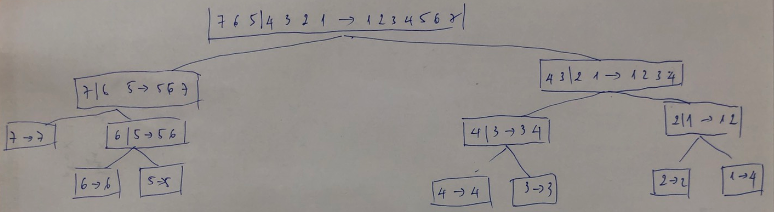 7 6 5|4 3 2 1 → 1 2 3 4 5 6 7
7|6 5 → 5 6 7
4 3|2 1 → 1 2 3 4
7 → 7
6|5 → 5 6
4|3 → 3 4
2|1 → 1 2
6 → 6
5 → 5
4 → 4
3 → 3
2 → 2
1 → 4